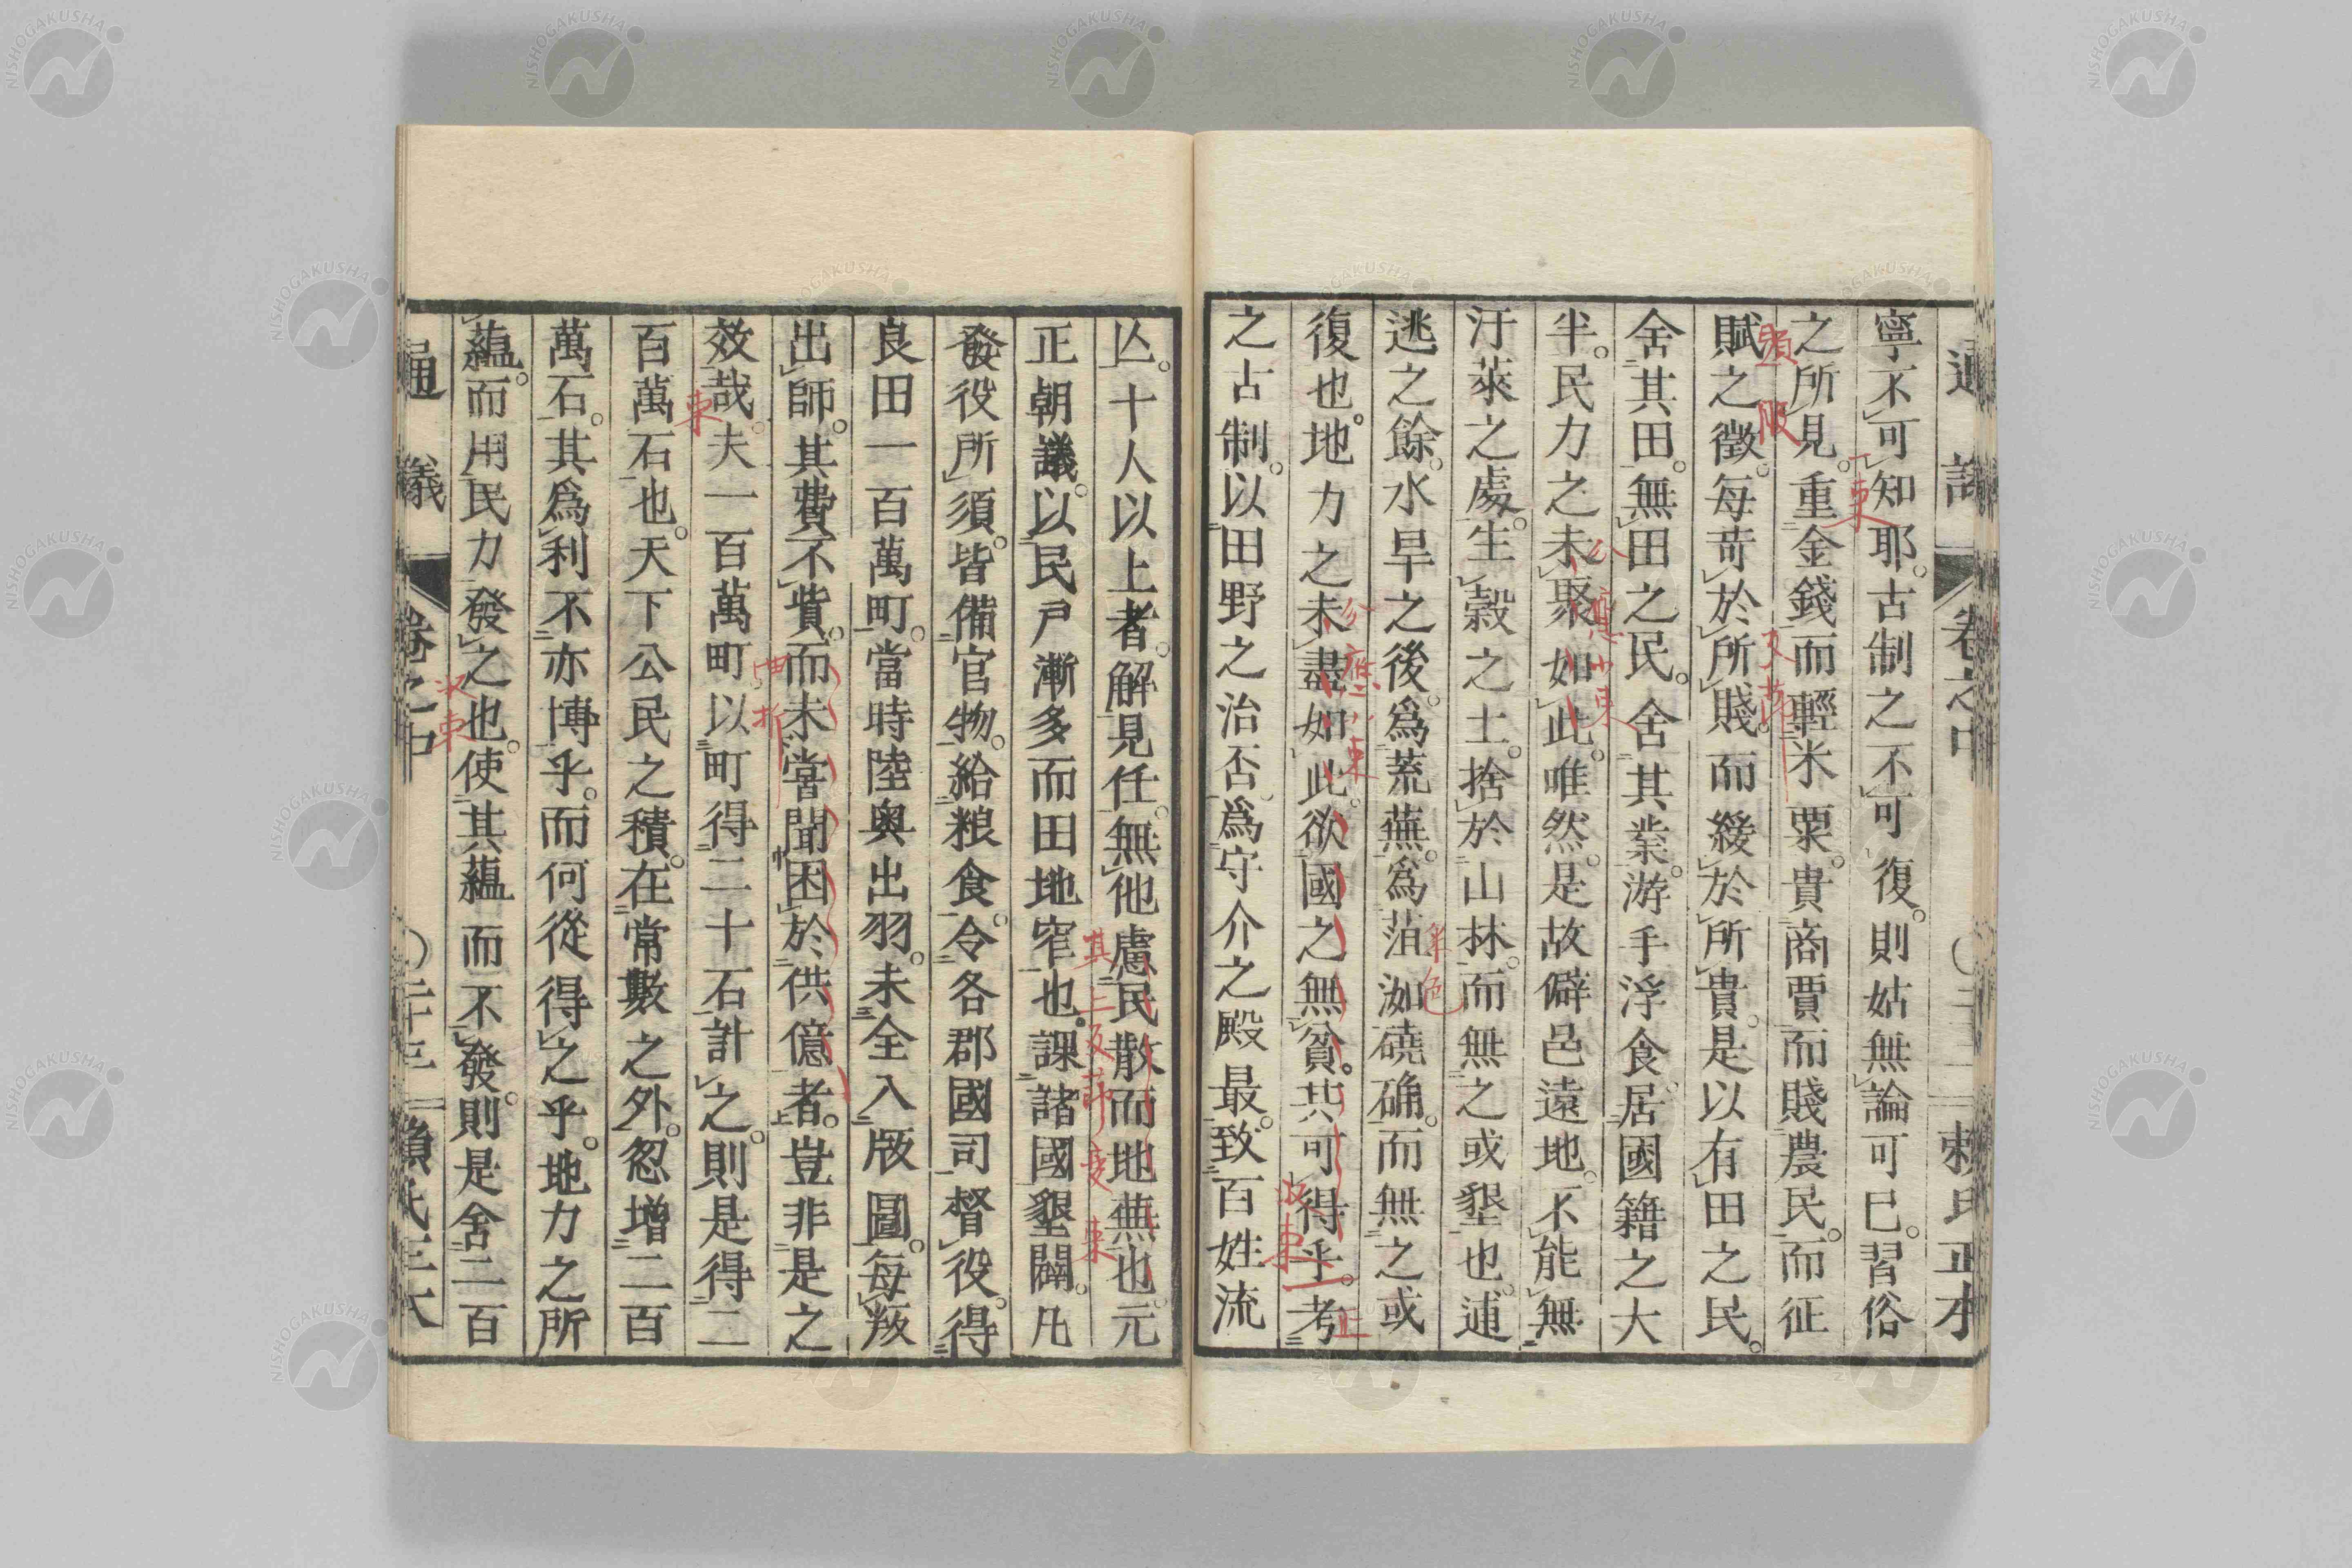 寧不可知耶。古制之不可復。則姑無論可巳。習俗
之所見。重金錢而輕米粟。貴商賈而賤農民。而征
賦之徵。每苛於所賤。而緩於所貴。是以有田之民。
舍其田。無田之民。舍其業。游手浮食。居國籍之大
半。民力之未聚如此。唯然。是故僻邑遠地。不能無
汙萊之處。生穀之土。捨於山林。而無之或墾也。逋
逃之餘。水旱之後。爲荒蕪。爲菹洳磽确。而無之或
復也。地力之未盡如此。欲國之無貧。共可得乎。考
之古制。以田野之治否。爲守介之殿最。致百姓流
亾。十人以上者。解見任。無他慮民散而地蕪也。元
正朝議。以民戸漸多而田地窄也。課諸國墾闢。凡
發役所須。皆備官物。給粮食。令各郡國司督役。得
良田一百萬町。當時陸奥出羽。未全入版圖。每叛
出師。其費不貲。而未嘗聞困於供億者。豈非是之
效哉。夫一百萬町以町得二十石計之。則是得二
百萬石也。天下公民之積。在常數之外。忽增二百
萬石。其爲利不亦博乎。而何從得之乎。地力之所
蘊。而用民力發之也。使其蘊而不發。則是舍二百
通議
卷之中
〇二十三
賴氏正本